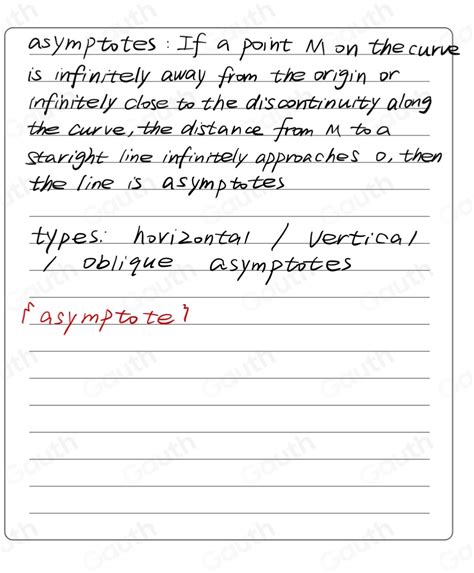 asymptotes: If a point M on the curve
is infinitely away from the origin or
infinitely close to the discontinuity along
the curve, the distance from M to a
staright line infinitely approaches 0, then
the line is asymptotes
types: horizontal / vertical
/ oblique asymptotes
「asymptote」